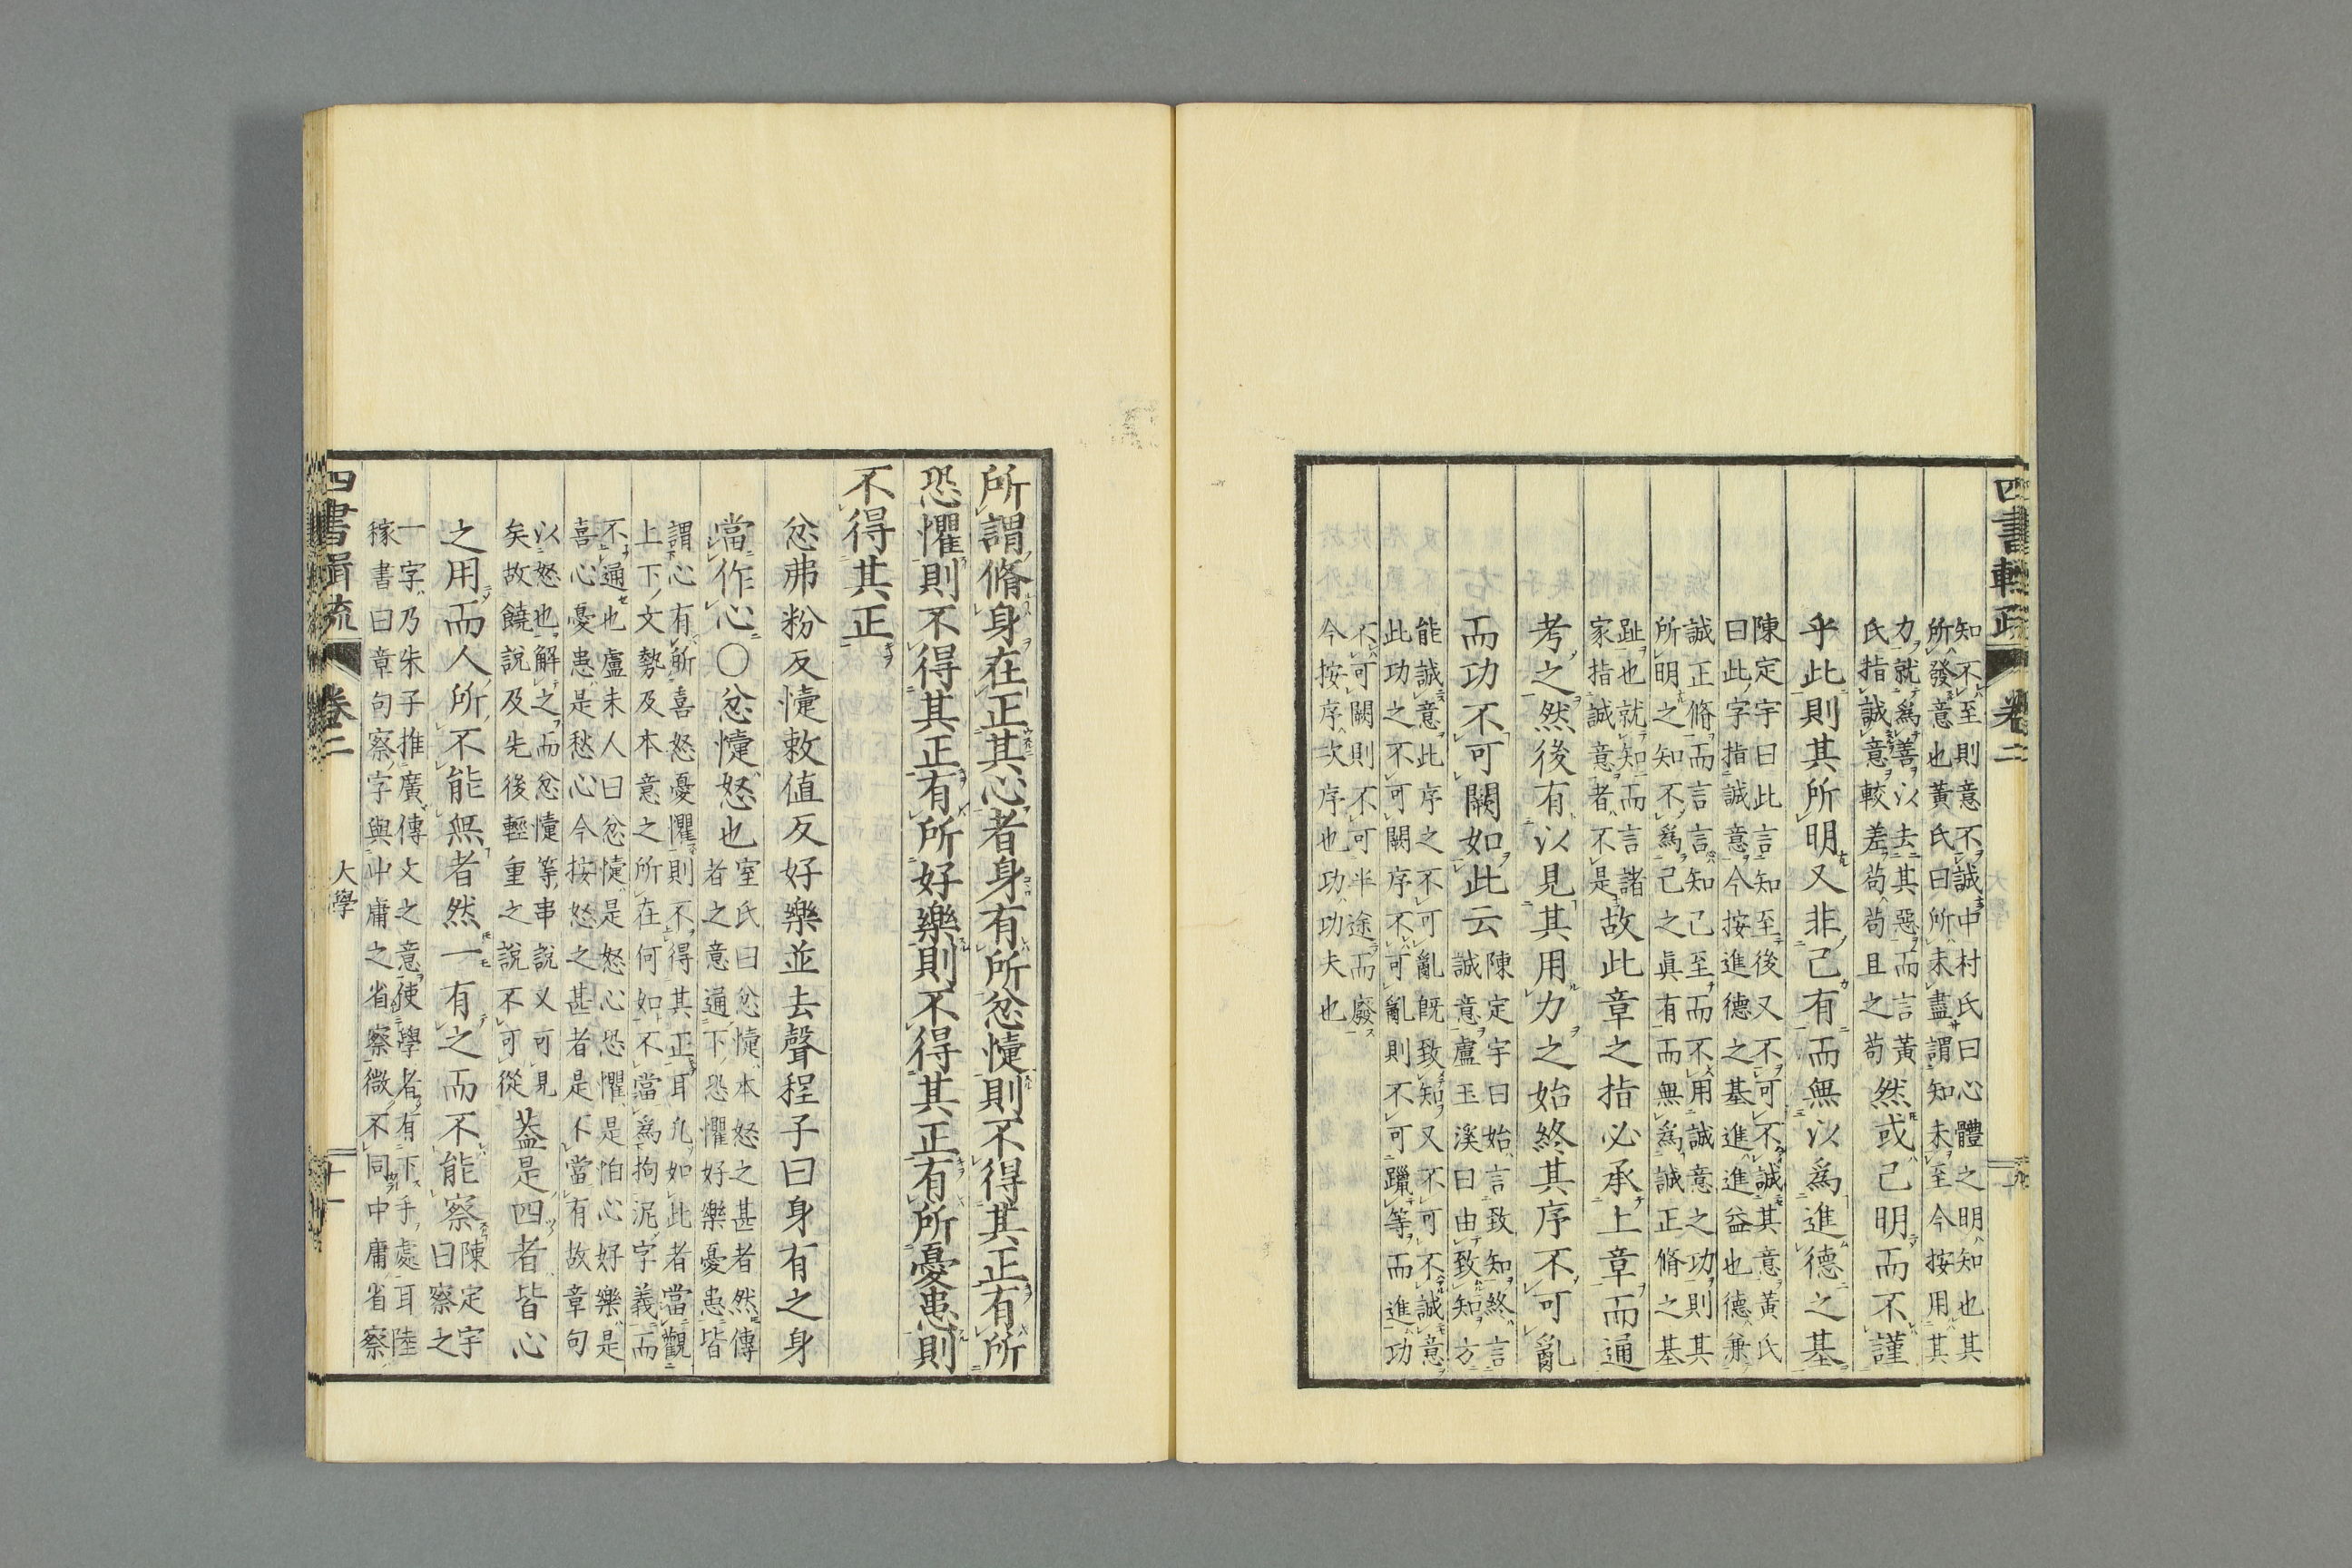 四書輯疏 卷二
知不至則意不誠中村氏曰心體之明知也其
所發意也黃氏曰所未盡謂知未至今按用其
力就爲善以去其惡而言黃
氏指誠意較差苟苟且之苟
然或己明而不謹
乎此則其所明又非己有而無以爲進德之基
陳定宇曰此言知至後又不可不誠其意黃氏
曰此字指誠意今按進德之基進進益也德兼
誠正脩而言言知己至而不用誠意之功則其
所明之知不爲己之眞有而無爲誠正脩之基
趾也就知而言諸
家指誠意者不是
故此章之指必承上章而通
考之然後有以見其用力之始終其序不可亂
而功不可闕如此云
陳定宇曰始言致知終言
誠意盧玉溪曰由致知方
能誠意此序之不可亂既致知又不可不誠意
此功之不可闕序不可亂則不可躐等而進功
不可闕則不可半途而廢
今按序次序也功功夫也
所謂脩身在正其心者身有所忿懥則不得其正有所
恐懼則不得其正有所好樂則不得其正有所憂患則
不得其正
忿弗粉反懥敕值反好樂並去聲程子曰身有之身
當作心〇忿懥怒也
室氏曰忿懥本怒之甚者然傳
者之意通下恐懼好樂憂患皆
謂心有所喜怒憂懼則不得其正耳凡如此者當觀
上下文勢及本意之所在何如不當爲拘泥字義而
不通也盧未人曰忿懥是怒心恐懼是怕心好樂是
喜心憂患是愁心今按怒之甚者是不當有故章句
以怒也解之而忿懥等串說又可見
矣故饒說及先後輕重之說不可從
蓋是四者皆心
之用而人所不能無者然一有之而不能察
陳定宇
曰察之
一字乃朱子推廣傳文之意使學者有下手處耳陸
稼書曰章句察字與中庸之省察微不同中庸省察
四書輯疏 卷二 大學 十一